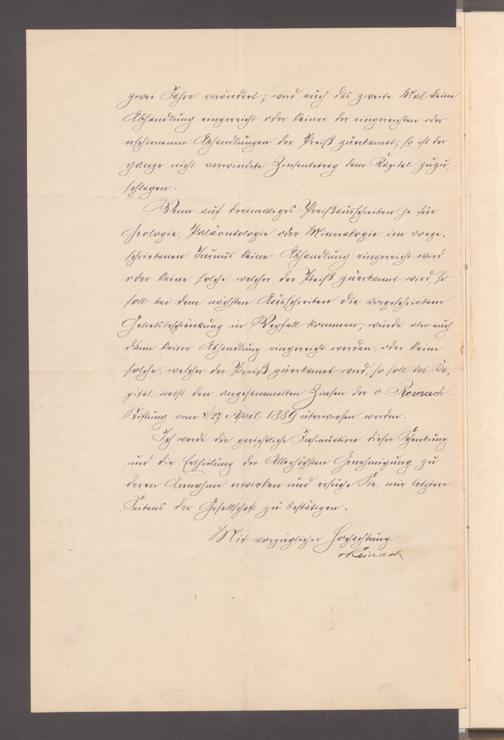 zwei Jahre verändert; wird auch das zweite Mal keine
Abhandlung eingereicht oder keiner der eingereichten oder
erschienenen Abhandlungen der Preiß zuerkannt, so ist der
ganze nicht verwendete Zinsenbetrag dem Kapital zuzu-
schlagen.
Wenn auf dreimaliges Preißausschreiben je für
Geologie, Paläontologie oder Mineralogie im vorge-
schriebenen Turnus keine Abhandlung eingereicht wird
oder keine solche, welcher der Preiß zuerkannt wird, so
soll bei dem nächsten Ausschreiben die vorgeschriebene
Gebietsbeschränkung in Wegfall kommen; würde aber auch
dann keine Abhandlung eingereicht werden, oder keine
solche, welcher der Preiß zuerkannt wird, so soll das Ka-
pital nebst den angesammelten Zinsen der v Reinach
Stiftung vom 4/27 April 1889 überwiesen werden.
Ich werde die gerichtliche Insinuation dieser Schenkung
und die Ertheilung der Allerhöchsten Genehmigung zu
deren Annahme erwirken und ersuche Sie, mir letztere
Seitens der Gesellschaft zu bestätigen.
Mit vorzüglicher Hochachtung
vReinach